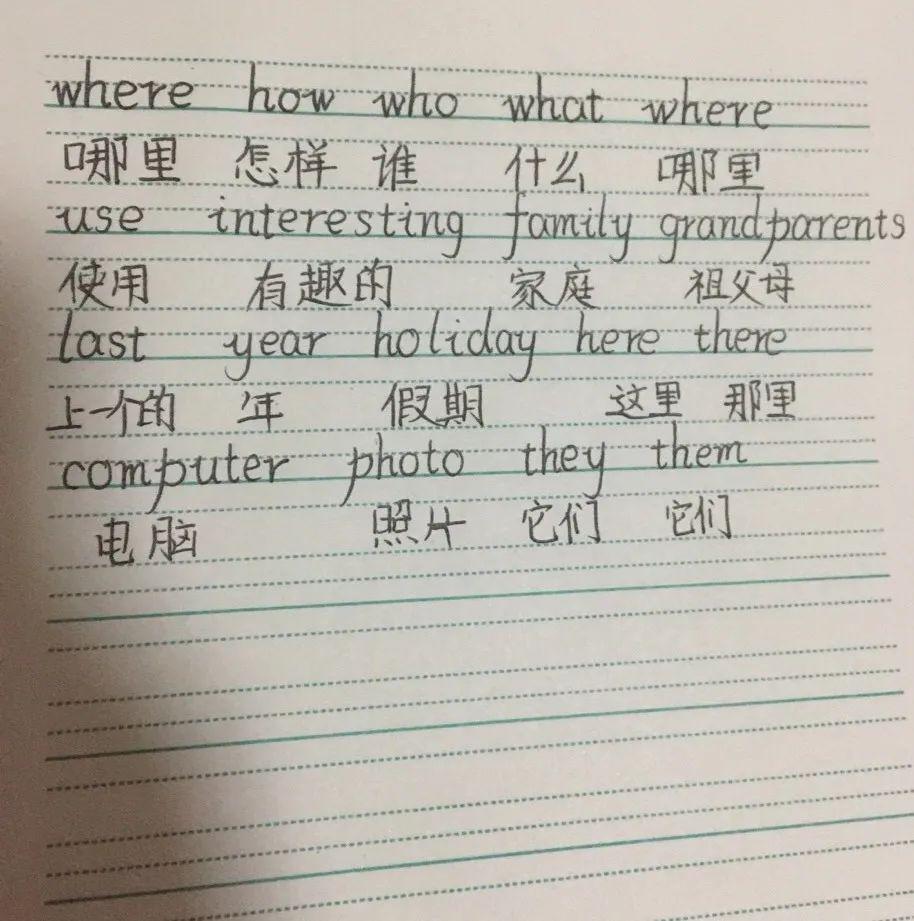 where how who what where
哪里 怎样 谁 什么 哪里
use interesting family grandparents
使用 有趣的 家庭 祖父母
last year holiday here there
上一个的 年 假期 这里 那里
computer photo they them
电脑 照片 它们 它们